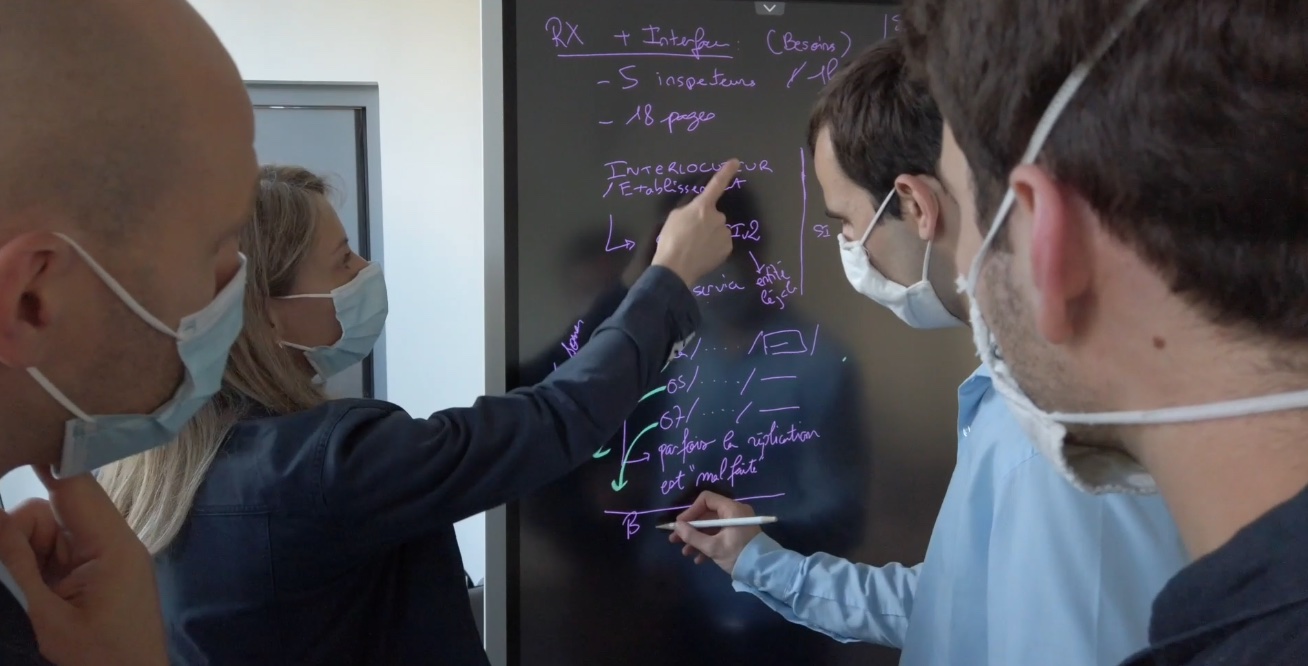 RX + Interface : (Besoins)
- 5 inspecteurs
- 18 pages
INTERLOCUTEUR
/ Etablissement
SI
service
entité
légale
05/..../—
07/..../—
parfois la réplication
est "mal faite"
B